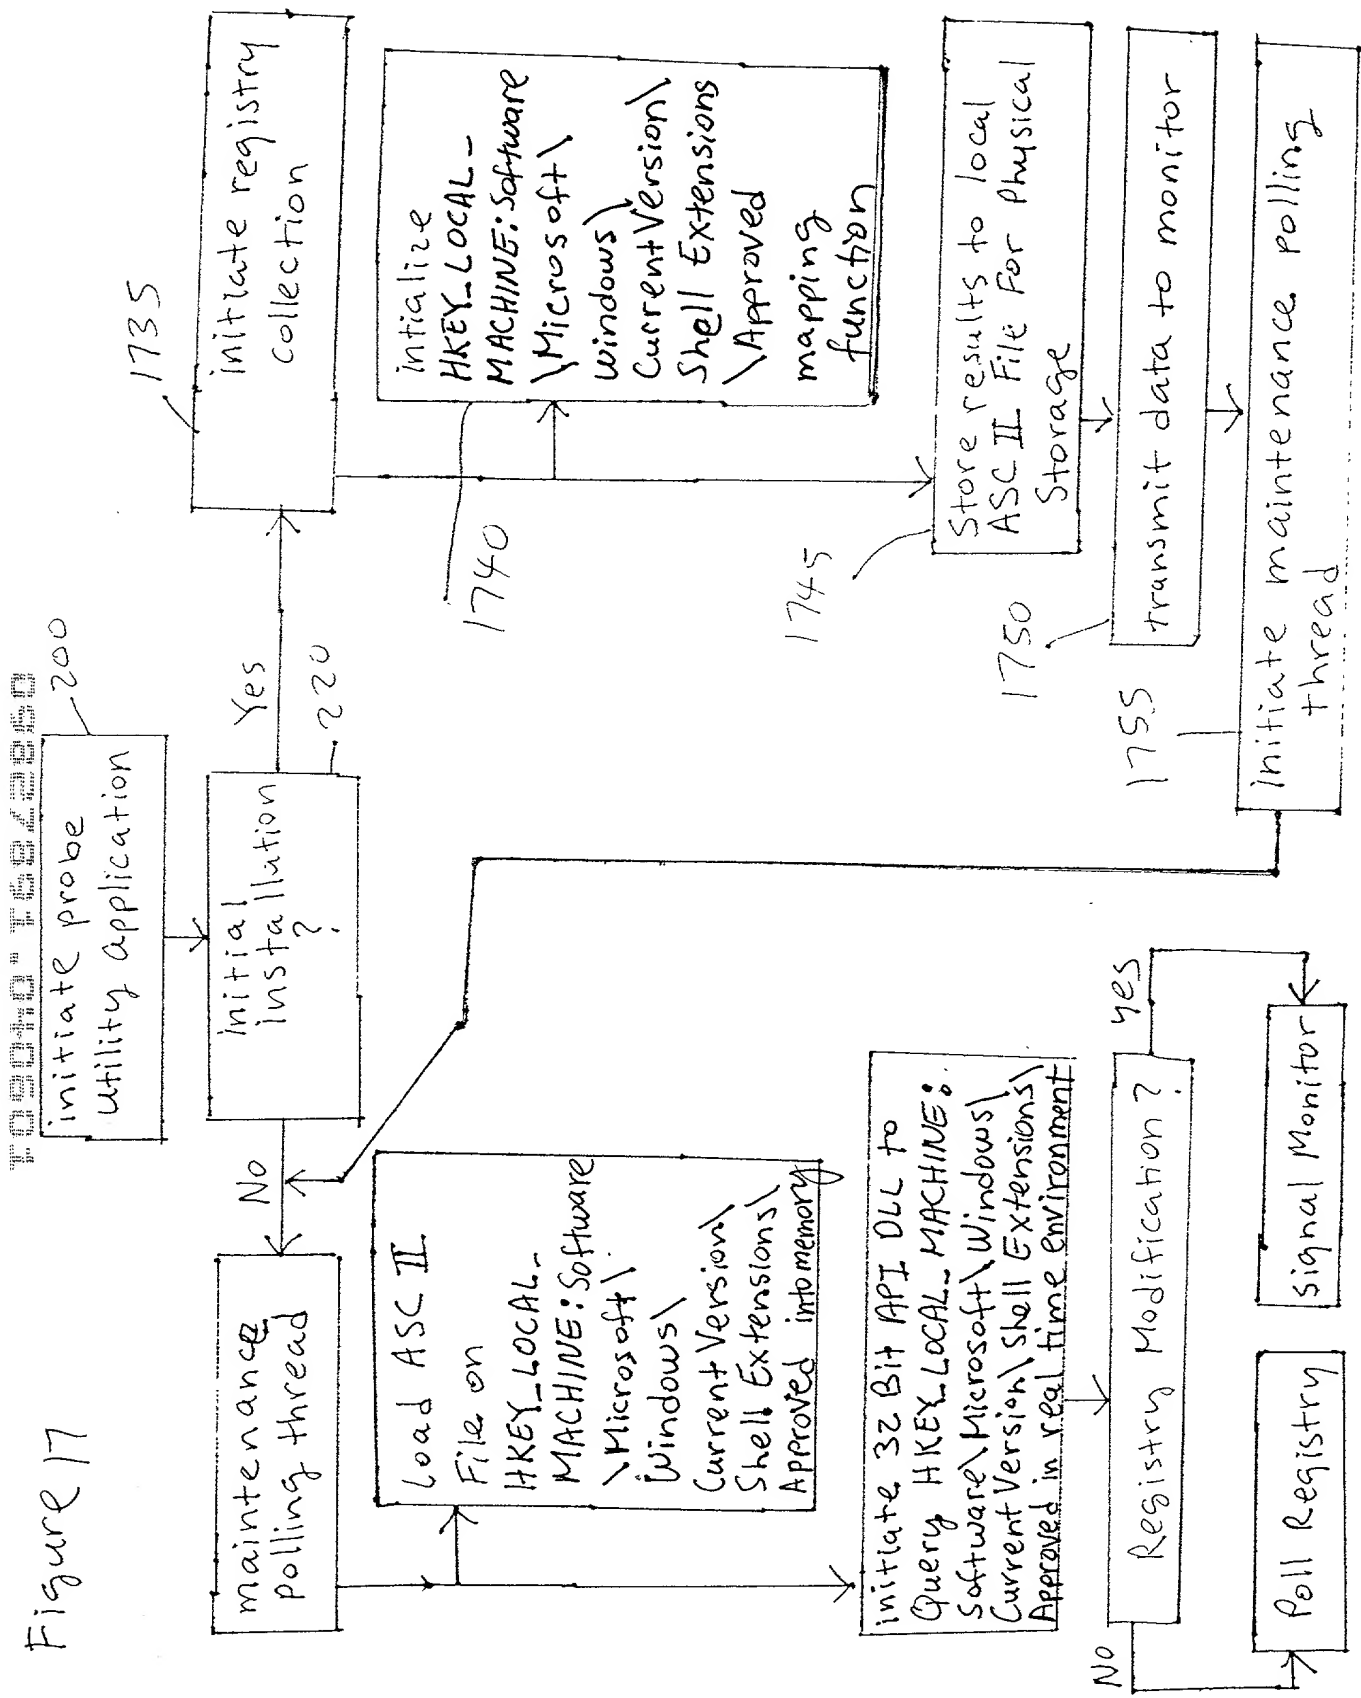 Figure 17
109040.16872860
initiate probe
utility application
200
initial
installution
?
220
Yes
No
1735
initiate registry
collection
1740
intialize
HKEY_LOCAL_
MACHINE:Software
\Microsoft\
Windows\
CurrentVersion\
Shell Extensions
\Approved
mapping
function
1745
Store results to local
ASC II File For Physical
Storage
1750
transmit data to monitor
1755
initiate maintenance polling
thread
maintenance
polling thread
Load ASC II
File on
HKEY_LOCAL_
MACHINE:Software
\Microsoft\
Windows\
CurrentVersion\
Shell Extensions\
Approved into memory
initiate 32 Bit API DLL to
Query HKEY_LOCAL_MACHINE:
Software\Microsoft\Windows\
CurrentVersion\Shell Extensions\
Approved in real time environment
Registry Modification?
No
yes
Poll Registry
Signal Monitor